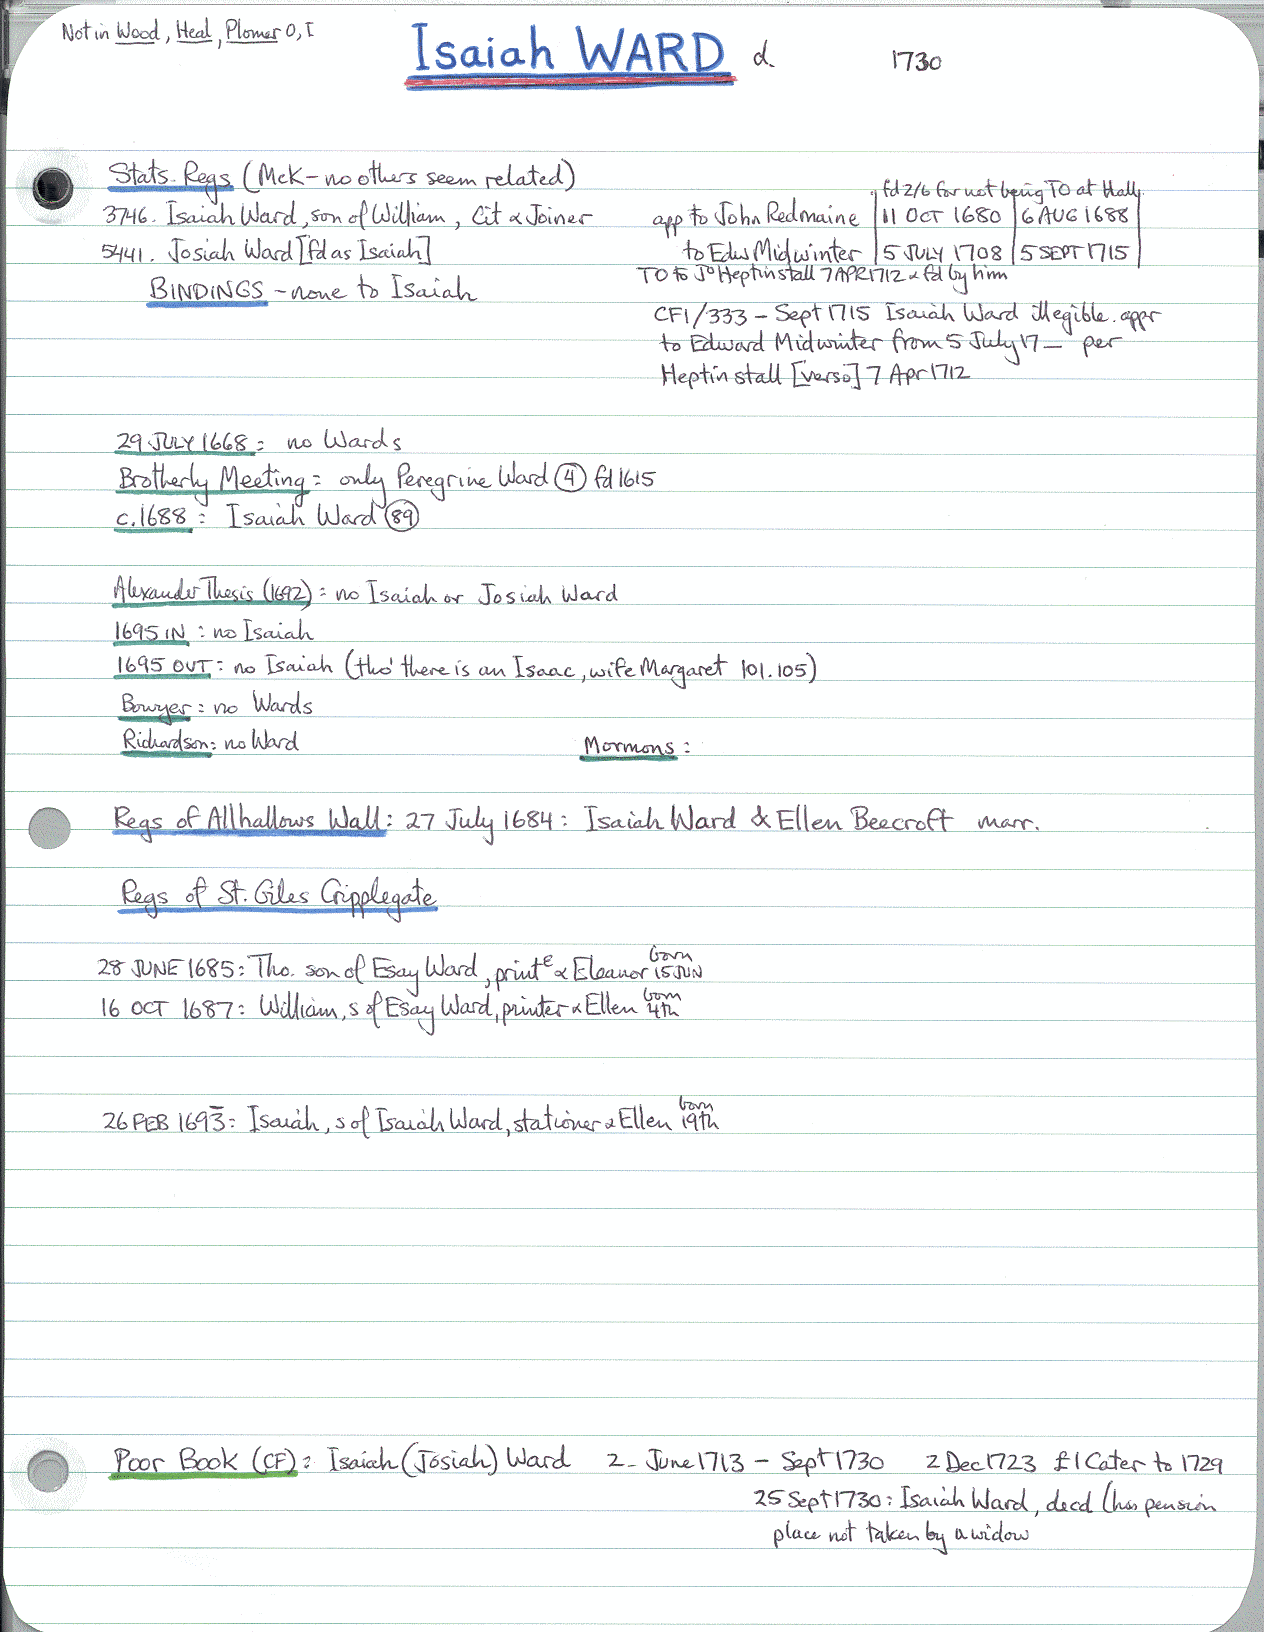 Not in Wood, Heal, Plomer O, I
Isaiah WARD d. 1730
Stats. Regs (McK - no others seem related)
fd 2/6 for not being TO at Hall
3746. Isaiah Ward, son of William, Cit & Joiner app to John Redmaine 11 OCT 1680 6 AUG 1688
5441. Josiah Ward [fd as Isaiah] to Edw Midwinter 5 JULY 1708 5 SEPT 1715
TO to Jo Heptinstall 7 APR 1712 & fd by him
BINDINGS - none to Isaiah
CF1/333 - Sept 1715 Isaiah Ward illegible. appr
to Edward Midwinter from 5 July 17— per
Heptinstall [verso] 7 Apr 1712
29 JULY 1668: no Wards
Brotherly Meeting: only Peregrine Ward 4 fd 1615
c.1688: Isaiah Ward 89
Alexander Thesis (1692): no Isaiah or Josiah Ward
1695 IN: no Isaiah
1695 OUT: no Isaiah (tho' there is an Isaac, wife Margaret 101.105)
Bowyer: no Wards
Richardson: no Ward Mormons:
Regs of Allhallows Wall: 27 July 1684: Isaiah Ward & Ellen Beecroft marr.
Regs of St. Giles Cripplegate
28 JUNE 1685: Tho. son of Esay Ward, printe & Eleanor born 15 JUN
16 OCT 1687: William, s of Esay Ward, printer & Ellen born 4th
26 FEB 1693: Isaiah, s of Isaiah Ward, stationer & Ellen born 19th
Poor Book (CF): Isaiah (Josiah) Ward 2- June 1713 - Sept 1730 2 Dec 1723 £1 Cater to 1729
25 Sept 1730: Isaiah Ward, decd (his pension
place not taken by a widow